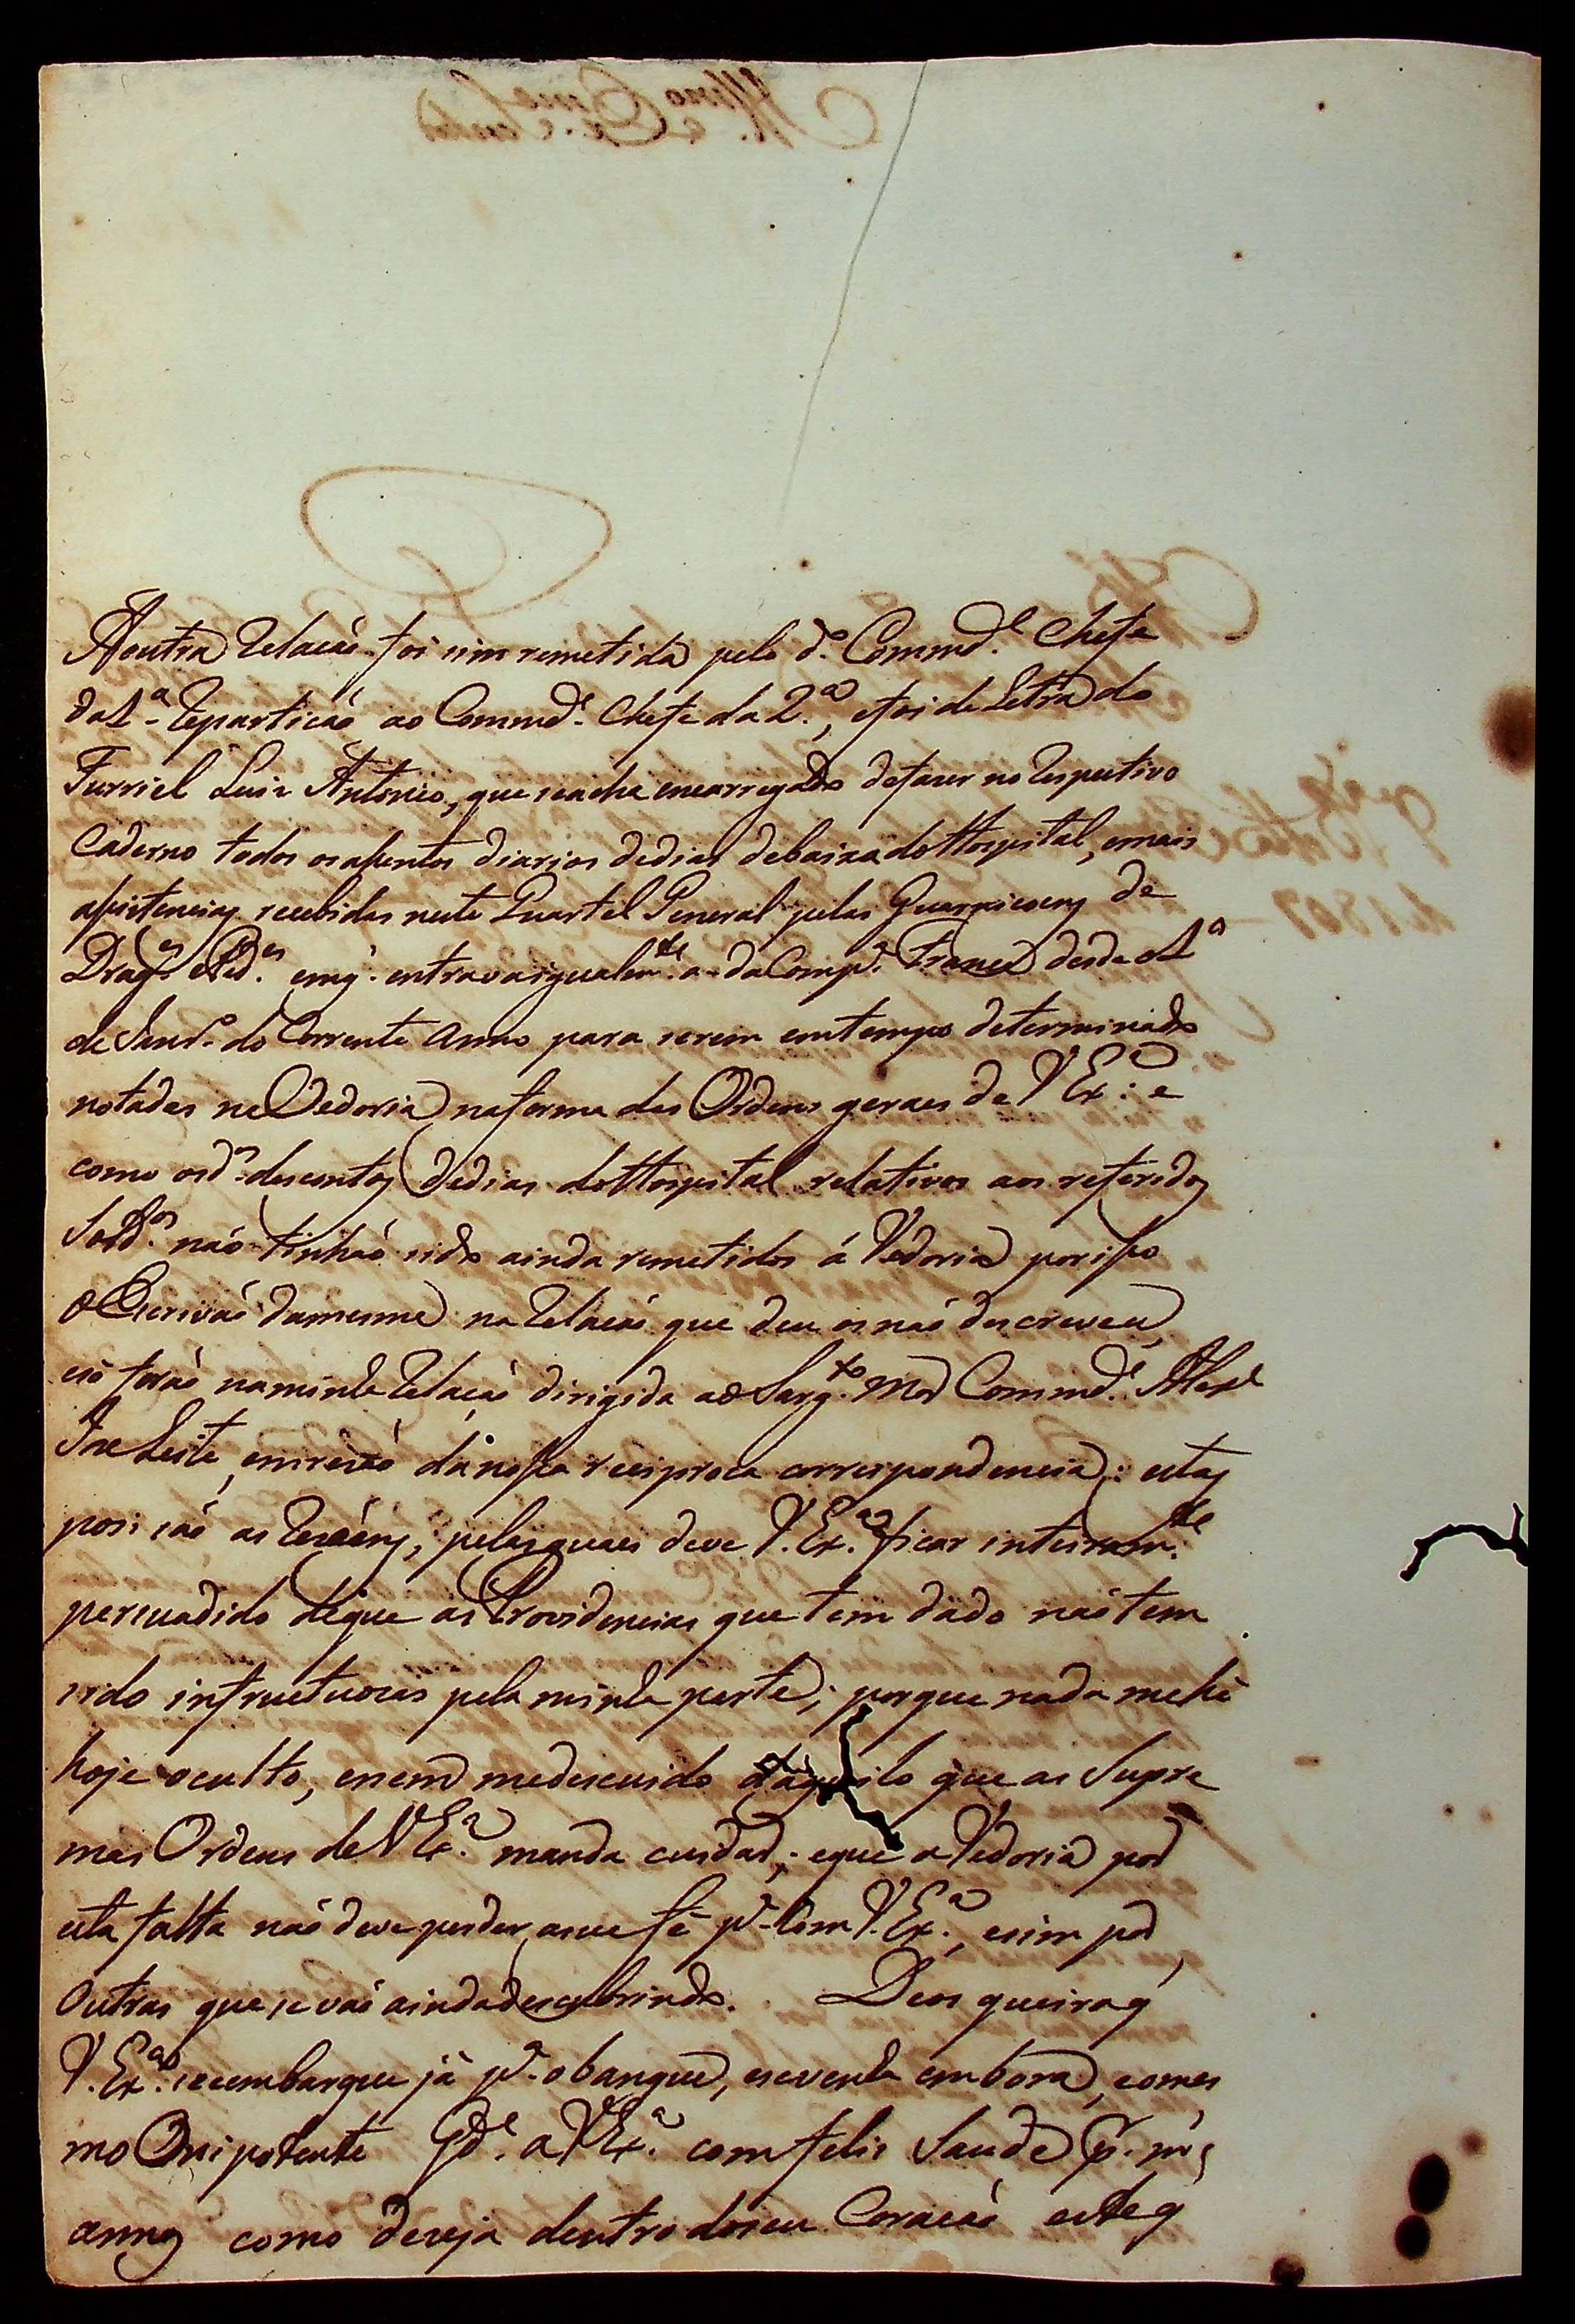 A outra Relacaõ foi sim remetida pelo d.º Commd.e Chefe
da 1.ª Reparticaõ ao Commd.e Chefe da 2.ª, e foi de Letra do
Furriel Luiz Antonio, que se acha encarregado de fazer no Respectivo
Caderno todos os asentos diarios de dias de baixa do Hospital, e mais
asistencias recebidas neste Quartel General pelas Guarnicoens de
Drag.es e Ped.es em q̃ entrava igualm.te a da Comp.ª Franca desde o 1.º
de Janr.º do Corrente Anno para serem em tempo determinado
notadas na Vedoria na forma das Ordens geraes de V Ex.ª: e
como os d.os descontos de dias do Hospital relativos aos referidos
Sold.os naõ tinhaõ sido ainda remetidos á Vedoria por iso
o Escrivaõ da mesma na Relacaõ que deu os naõ descreveu,
e só foraõ na minha Relacaõ dirigida ao Sarg.to Mor Commd.e Alex.e
Joze Leite, em rezaõ da nosa reciproca correspondencia: estas
pois saõ as Rezoens, pelas quaes deve V. Ex.ª ficar inteiram.te
persuadido de que as Providencias que tem dado naõ tem
sido infructuozas pela minha parte; porque nada me hé
hoje oculto, e nem me descuido daquilo que as Supre
mas Ordens de V Ex.ª manda cuidar; e que a Vedoria por
esta falta naõ deve perder a sua fé p.ª com V. Ex.ª, e sim por
outras que se vaõ ainda descubrindo. Deos queira q̃
V. Ex.ª se embarque já p.ª o bangue, e se venha embora, e o mes
mo Onipotente G.de a V Ex.ª com felis Saude p.r m.s
annos como deseja dentro do seu Coracaõ este q̃